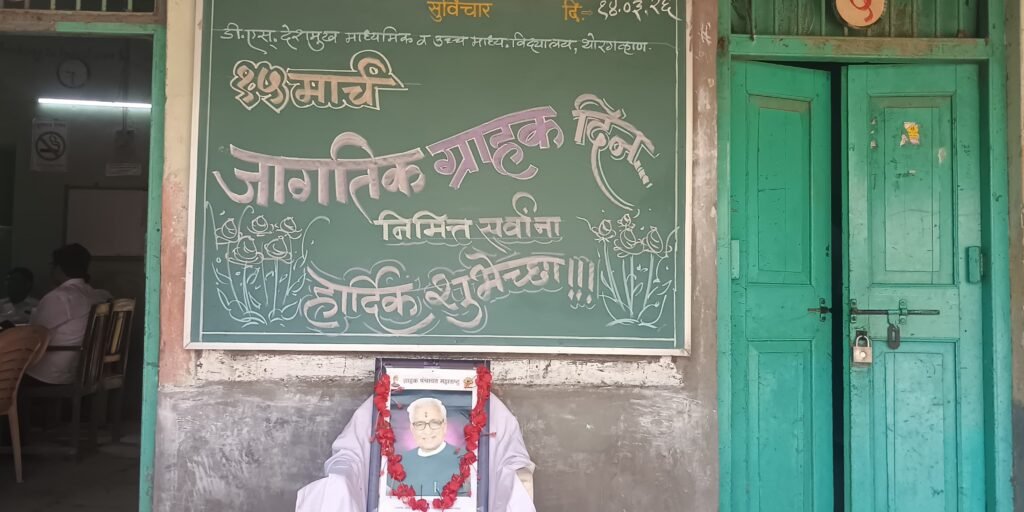 सुविचार दि:- १४.०३.२६
५
डी.एस. देशमुख माध्यमिक व उच्च माध्य. विद्यालय, थोरगव्हाण.
१५ मार्च
जागतिक ग्राहक दिन...
निमित्त सर्वांना
हार्दिक शुभेच्छा!!!
ग्राहक पंचायत महाराष्ट्र